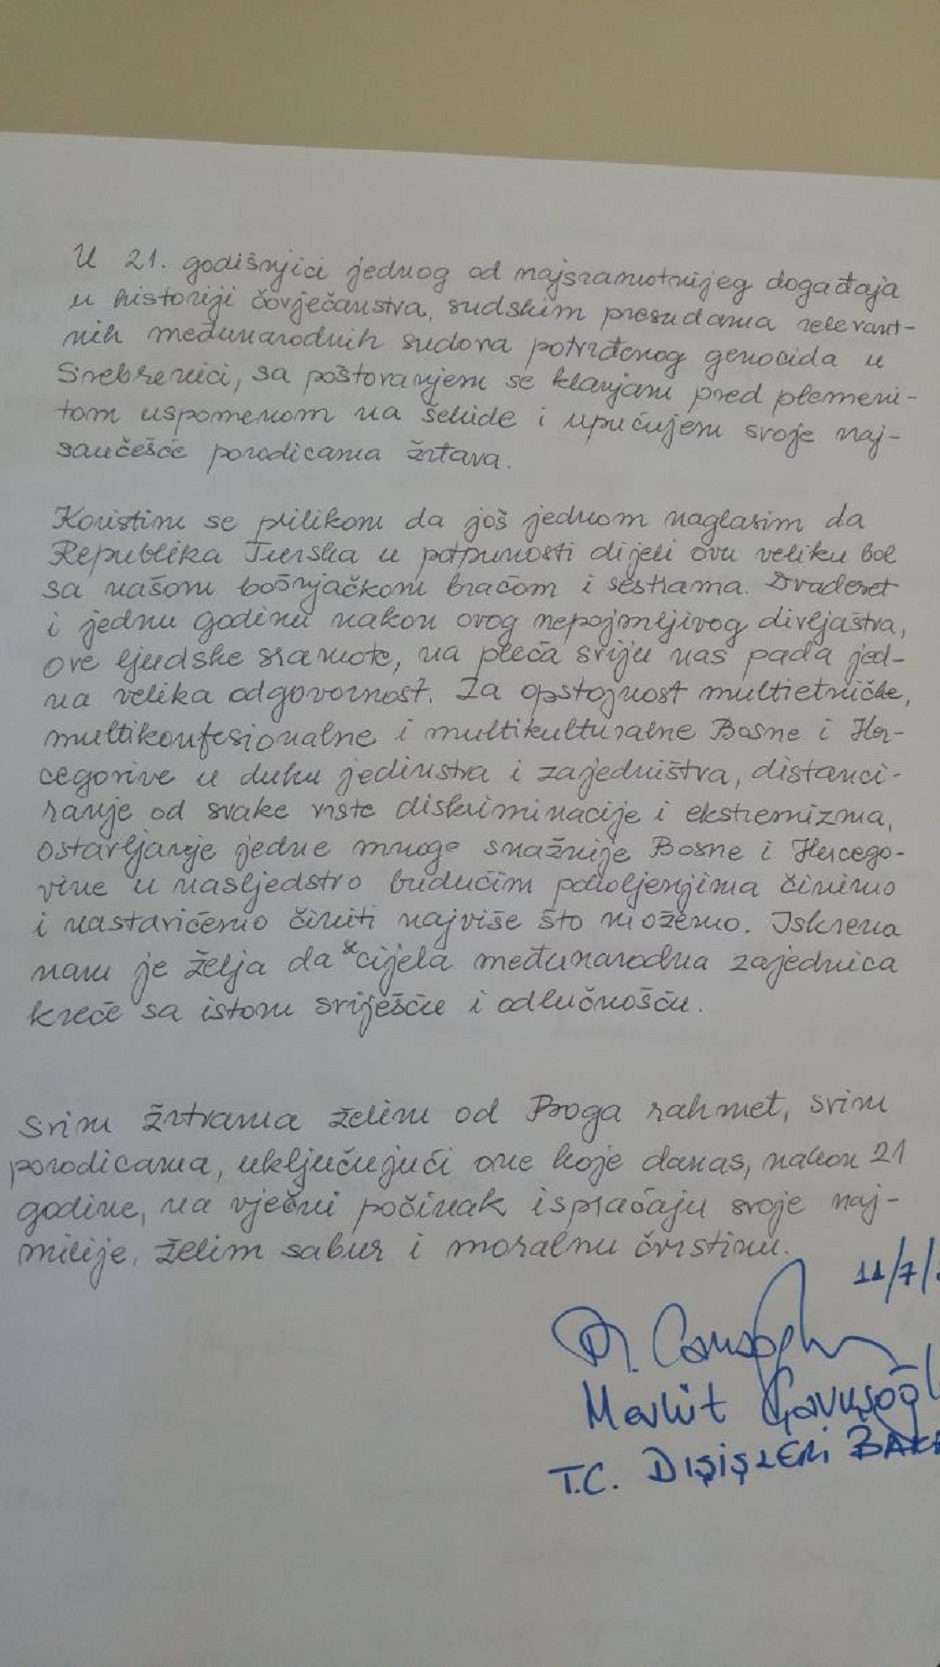 U 21. godišnjici jednog od najsramotnijeg događaja
u historiji čovječanstva, sudskim presudama relevant-
nih međunarodnih sudova potvrđenog genocida u
Srebrenici, sa poštovanjem se klanjam pred plemeni-
tom uspomenom na šehide i upućujem svoje naj-
saučešće porodicama žrtava.
Koristim se prilikom da još jednom naglasim da
Republika Turska u potpunosti dijeli ovu veliku bol
sa našom bošnjačkom braćom i sestrama. Dvadeset
i jednu godinu nakon ovog nepojmljivog divljaštva,
ove ljudske sramote, na pleća sviju nas pada jed-
na velika odgovornost. Za opstojnost multietničke,
multikonfesionalne i multikulturalne Bosne i Her-
cegovine u duhu jedinstva i zajedništva, distanci-
ranje od svake vrste diskriminacije i ekstremizma,
ostavljanje jedne mnogo snažnije Bosne i Hercego-
vine u nasljedstvo budućim pokoljenjima činimo
i nastavićemo činiti najviše što možemo. Iskrena
nam je želja da cijela međunarodna zajednica
kreće sa istom sviješću i odlučnošću.
Svim žrtvama želim od Boga rahmet, svim
porodicama, uključujući one koje danas, nakon 21
godine, na vječni počinak ispraćaju svoje naj-
milije, želim sabur i moralnu čvrstinu.
11/7/
Mevlüt Çavuşoğl
T.C. DIŞİŞLERİ BAK